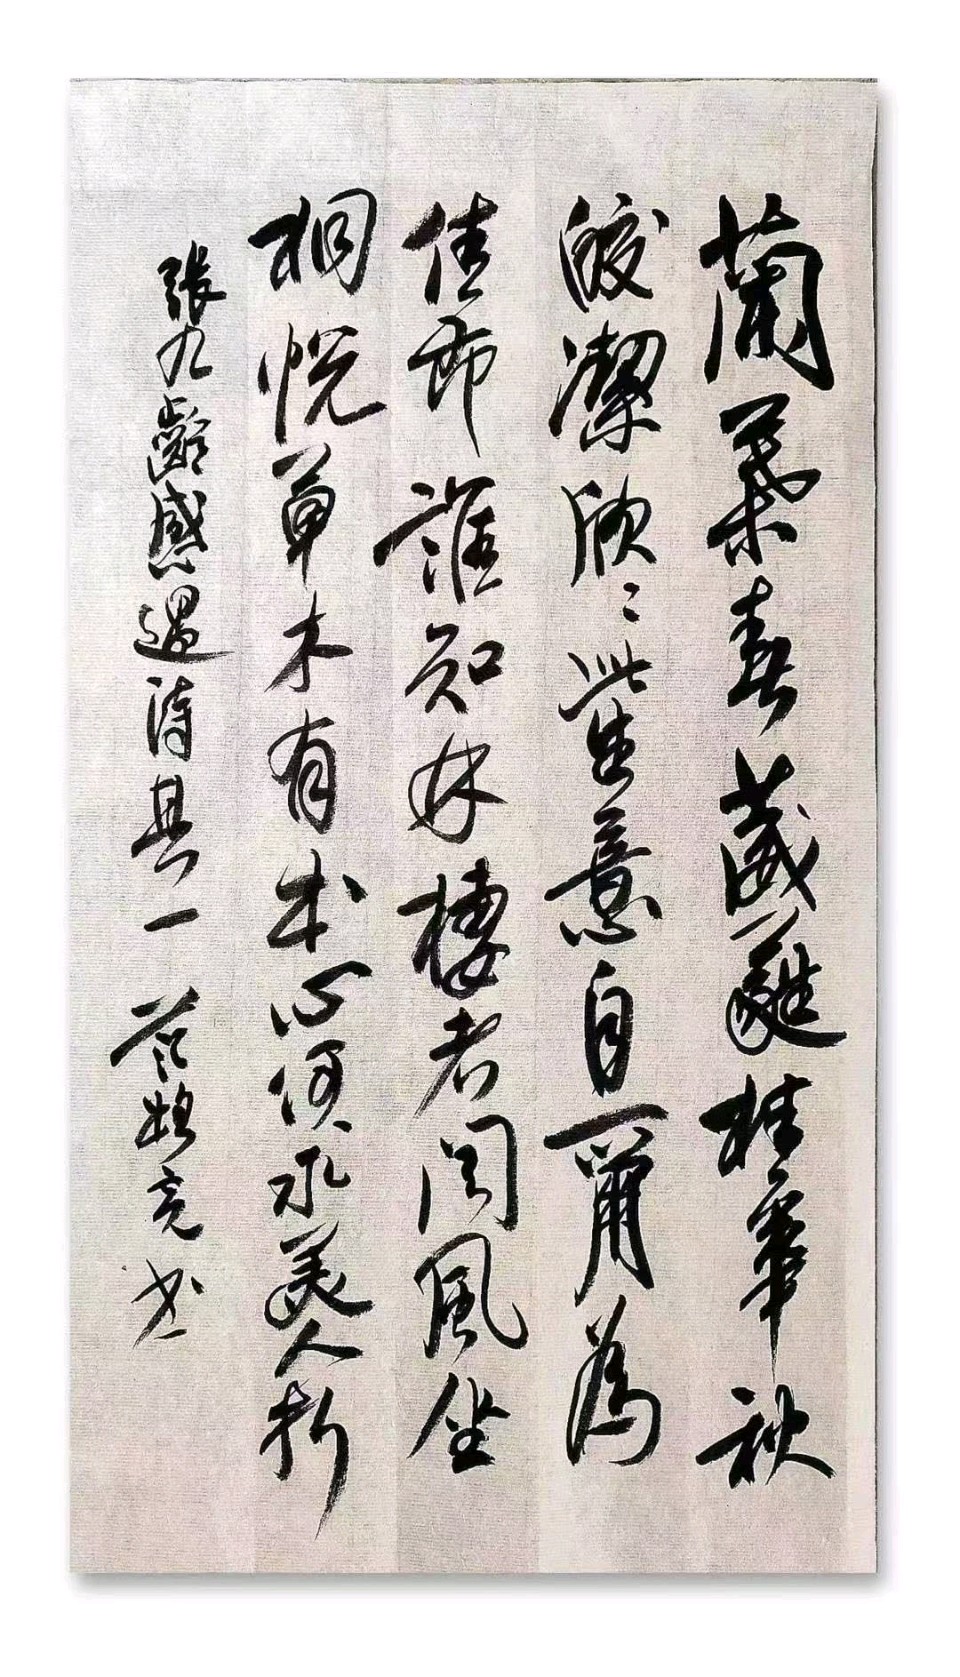 蘭葉春葳蕤桂華秋
皎潔欣〻此生意自爾為
佳節誰知林棲者聞風坐
相悅草木有本心何求美人折
張九齡感遇詩其一 范 亮 书